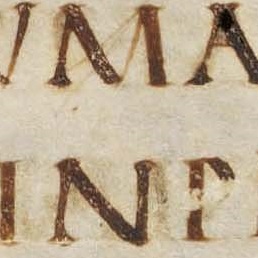 VMA
INP